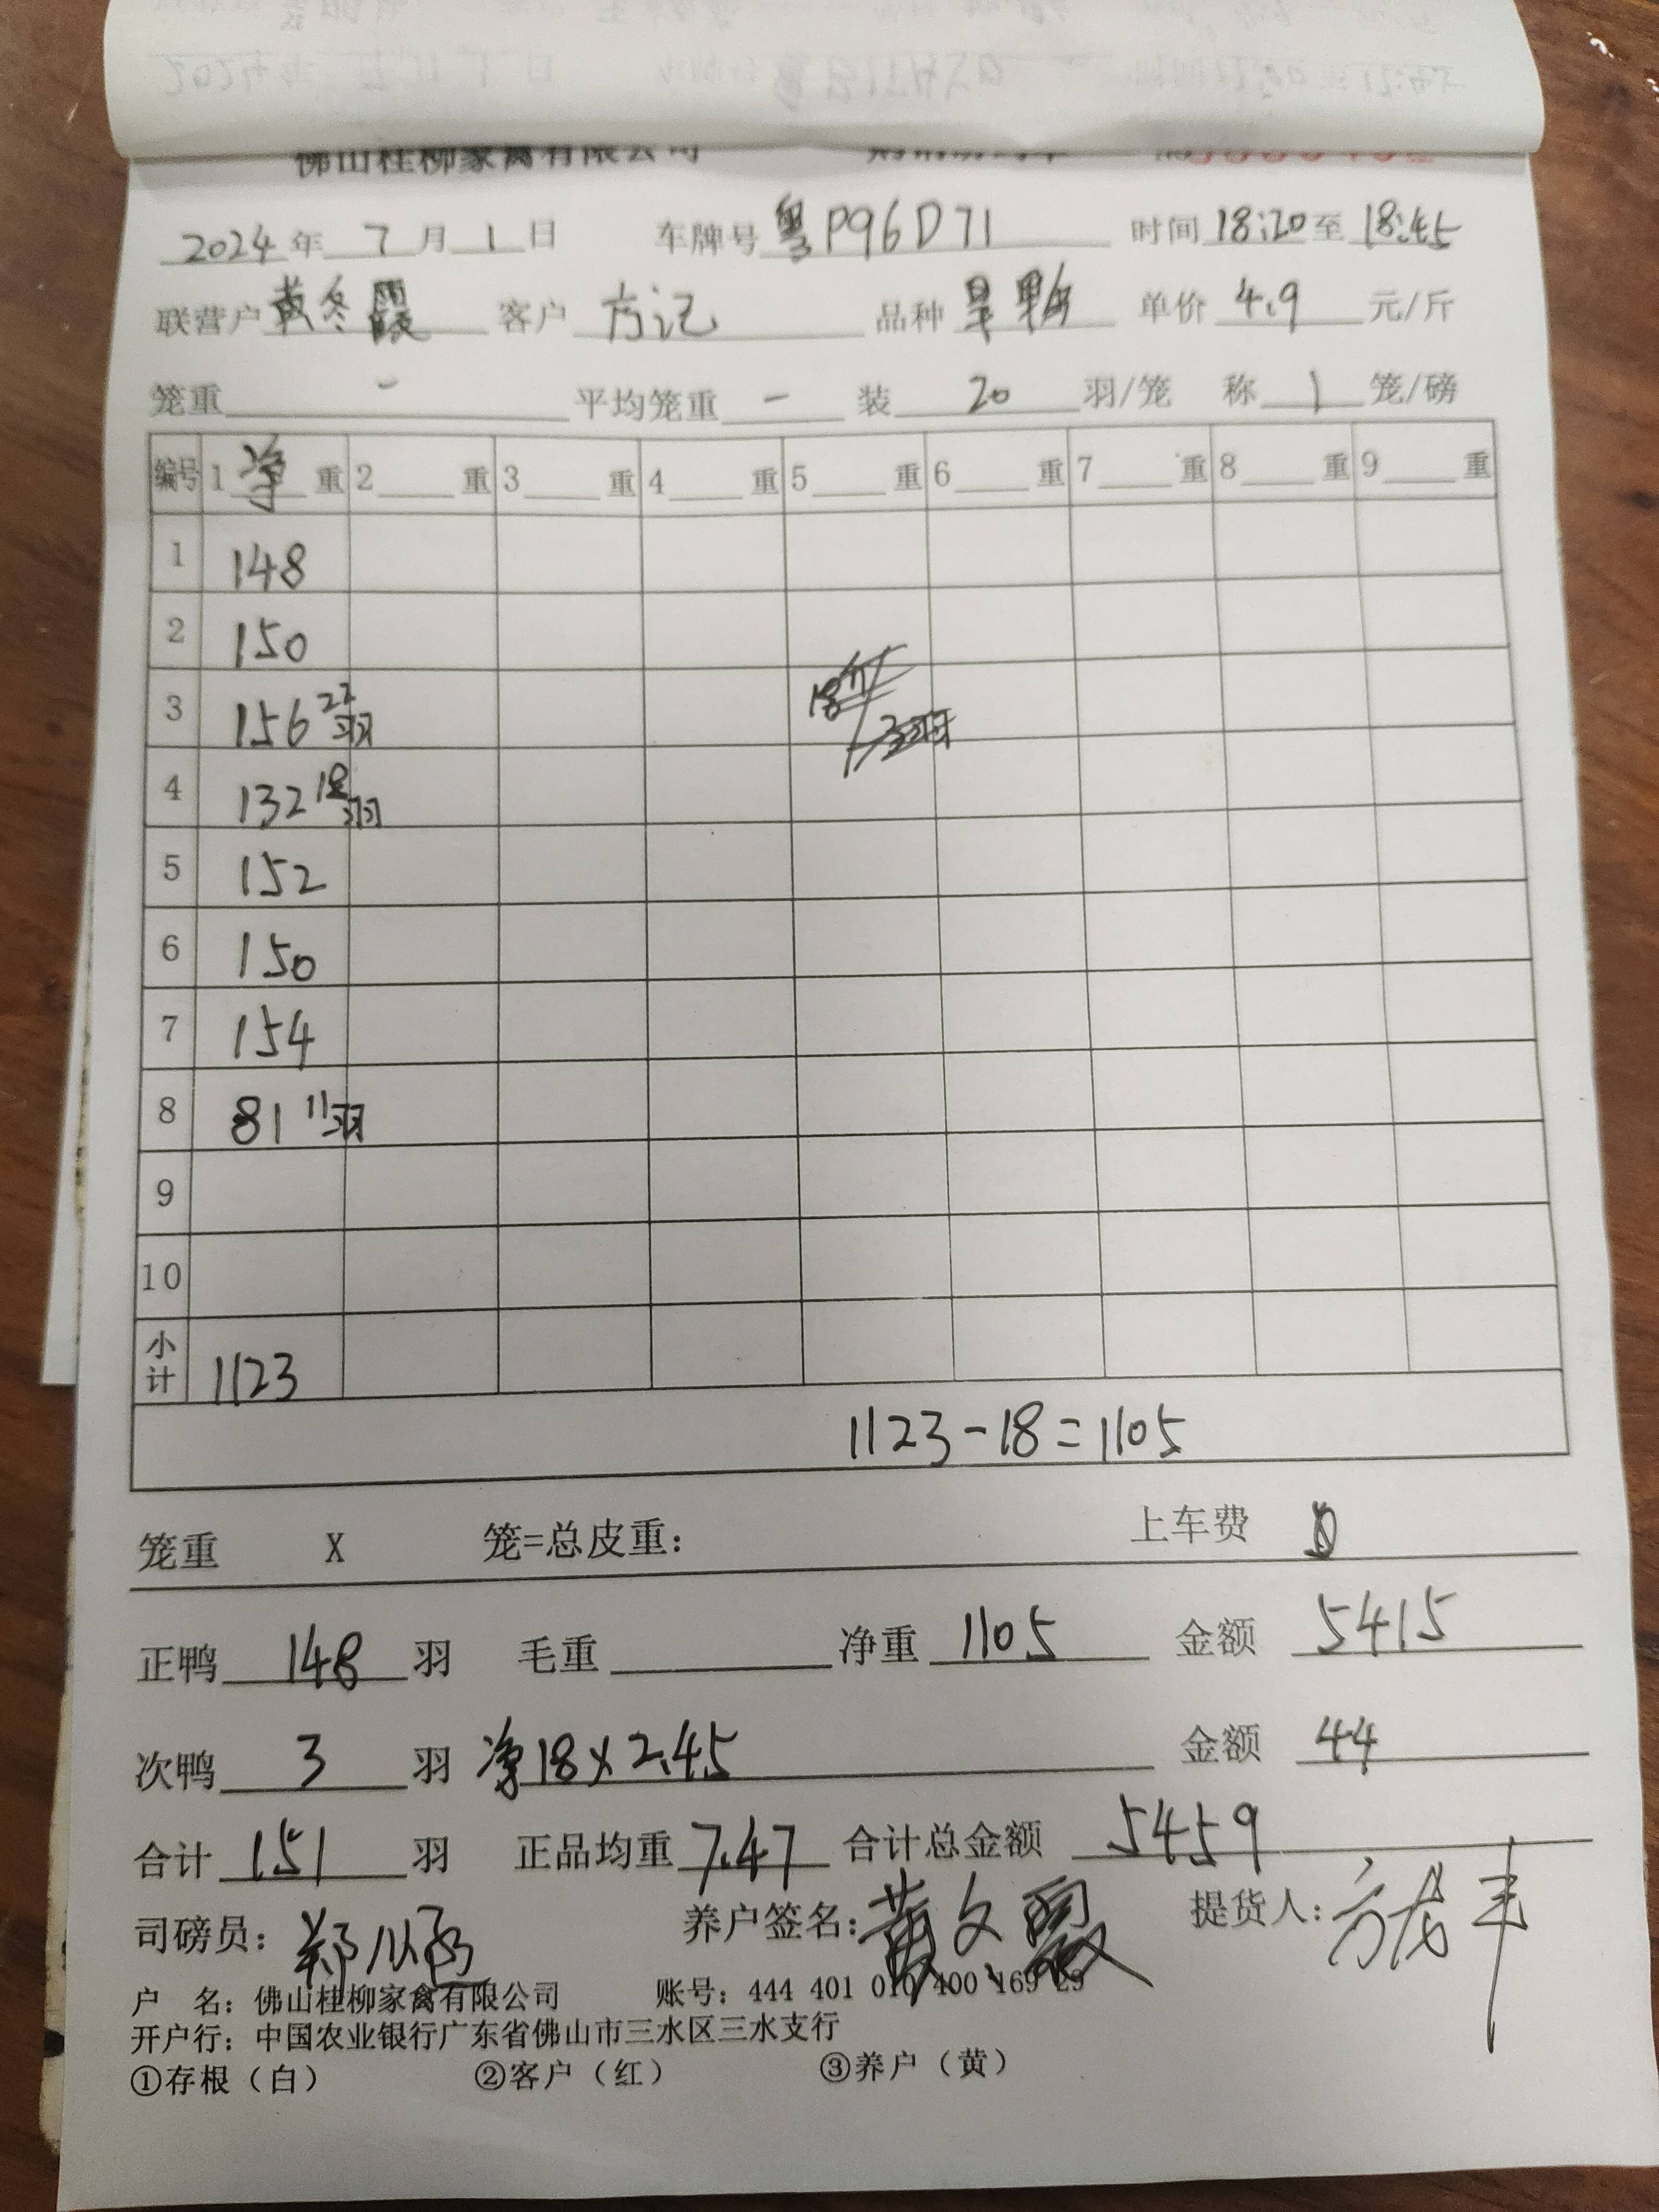 佛山桂柳家禽有限公司
2024年 7月1日 车牌号 粤P96D71 时间 18:20至18:45
联营户 黄冬霞 客户 方记 品种 单价 4.9 元/斤
笼重 - 平均笼重 - 装 20 羽/笼 称 1 笼/磅
编号 1 净 重 2 重 3 重 4 重 5 重 6 重 7 重 8 重 9 重
1 148
2 150
3 156 22羽 18斤/3羽
4 132 18羽
5 152
6 150
7 154
8 81 11羽
9
10
小计 1123
1123-18=1105
笼重 X 笼=总皮重: 上车费
正鸭 148 羽 毛重 净重 1105 金额 5415
次鸭 3 羽 净18×2.45 金额 44
合计 151 羽 正品均重 7.47 合计总金额 5459
司磅员: 养户签名: 提货人:
户 名: 佛山桂柳家禽有限公司 账号: 444 401 010 400 169 29
开户行: 中国农业银行广东省佛山市三水区三水支行
①存根（白） ②客户（红） ③养户（黄）